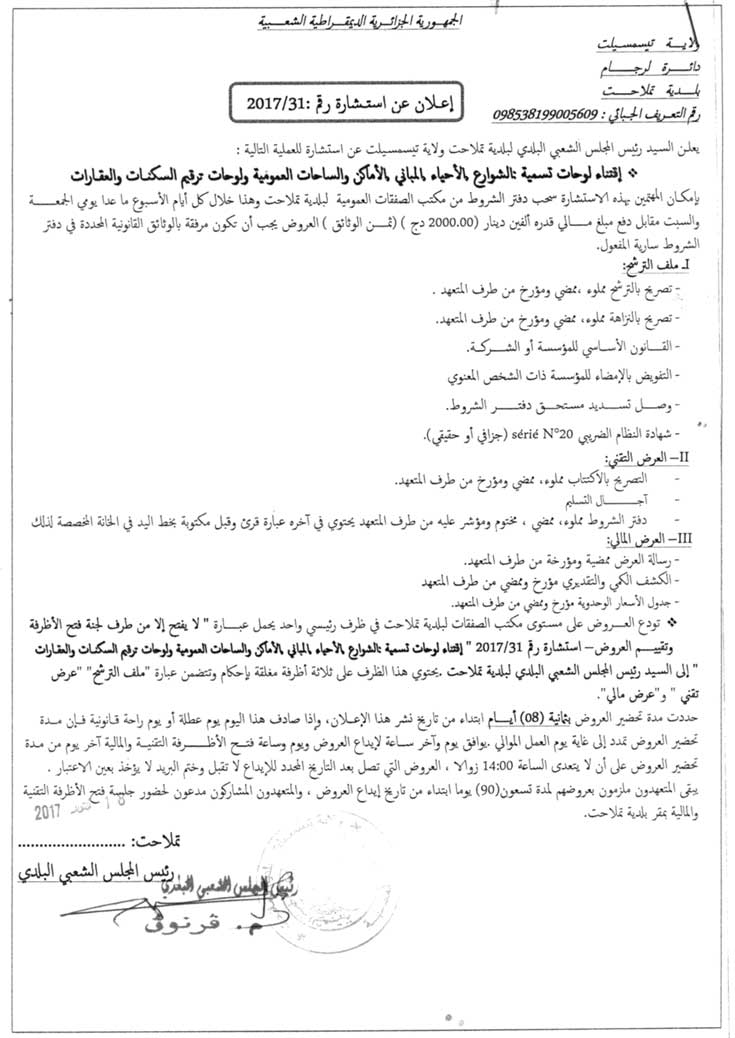 الجمهورية الجزائرية الديمقراطية الشعبية
ولاية تيسمسيلت
دائرة لرجام
بلدية تملاحت
رقم التعريف الجبائي : 098538199005609
إعلان عن استشارة رقم :2017/31
يعلن السيد رئيس المجلس الشعبي البلدي لبلدية تملاحت ولاية تيسمسيلت عن استشارة للعملية التالية :
❖ إقتناء لوحات تسمية :الشوارع ,الأحياء ,المباني ,الأماكن والساحات العمومية ولوحات ترقيم السكنات والعقارات
بإمكان المهتمين بهذه الاستشارة سحب دفتر الشروط من مكتب الصفقات العمومية لبلدية تملاحت وهذا خلال كل أيام الأسبوع ما عدا يومي الجمعة
والسبت مقابل دفع مبلغ مالي قدره ألفين دينار (2000.00 دج ) (ثمن الوثائق ) العروض يجب أن تكون مرفقة بالوثائق القانونية المحددة في دفتر
الشروط سارية المفعول.
I. ملف الترشح:
- تصريح بالترشح مملوء ،ممضي ومؤرخ من طرف المتعهد .
- تصريح بالنزاهة مملوء، ممضي ومؤرخ من طرف المتعهد.
- القانون الأساسي للمؤسسة أو الشركة.
- التفويض بالإمضاء للمؤسسة ذات الشخص المعنوي
- وصل تسديد مستحق دفتر الشروط.
- شهادة النظام الضريبي sérié N°20 (جزافي أو حقيقي).
II– العرض التقني:
- التصريح بالاكتتاب مملوء، ممضي ومؤرخ من طرف المتعهد.
- آجال التسليم
- دفتر الشروط مملوء، ممضي ، مختوم ومؤشر عليه من طرف المتعهد يحتوي في آخره عبارة قرئ وقبل مكتوبة بخط اليد في الخانة المخصصة لذلك
III– العرض المالي:
- رسالة العرض ممضية ومؤرخة من طرف المتعهد.
- الكشف الكمي والتقديري مؤرخ وممضي من طرف المتعهد
- جدول الأسعار الوحدوية مؤرخ وممضي من طرف المتعهد.
❖ تودع العروض على مستوى مكتب الصفقات لبلدية تملاحت في ظرف رئيسي واحد يحمل عبارة " لا يفتح إلا من طرف لجنة فتح الأظرفة
وتقييم العروض– استشارة رقم 2017/31 " إقتناء لوحات تسمية :الشوارع ,الأحياء ,المباني ,الأماكن والساحات العمومية ولوحات ترقيم السكنات والعقارات
" إلى السيد رئيس المجلس الشعبي البلدي لبلدية تملاحت .يحتوي هذا الظرف على ثلاثة أظرفة مغلقة بإحكام وتتضمن عبارة "ملف الترشح" "عرض
تقني " و"عرض مالي".
حددت مدة تحضير العروض بثمانية (08) أيام ابتداء من تاريخ نشر هذا الإعلان، وإذا صادف هذا اليوم يوم عطلة أو يوم راحة قانونية فإن مدة
تحضير العروض تمدد إلى غاية يوم العمل الموالي .يوافق يوم وآخر ساعة لإيداع العروض ويوم وساعة فتح الأظرفة التقنية والمالية آخر يوم من مدة
تحضير العروض على أن لا يتعدى الساعة 14:00 زوالا ، العروض التي تصل بعد التاريخ المحدد للإيداع لا تقبل وختم البريد لا يؤخذ بعين الاعتبار .
يبقى المتعهدون ملزمون بعروضهم لمدة تسعون(90) يوما ابتداء من تاريخ إيداع العروض ، والمتعهدون المشاركون مدعون لحضور جلسة فتح الأظرفة التقنية
والمالية بمقر بلدية تملاحت.
2017
تملاحت: .........................
رئيس المجلس الشعبي البلدي
رئيس المجلس الشعبي البلدي
م. قرنوق